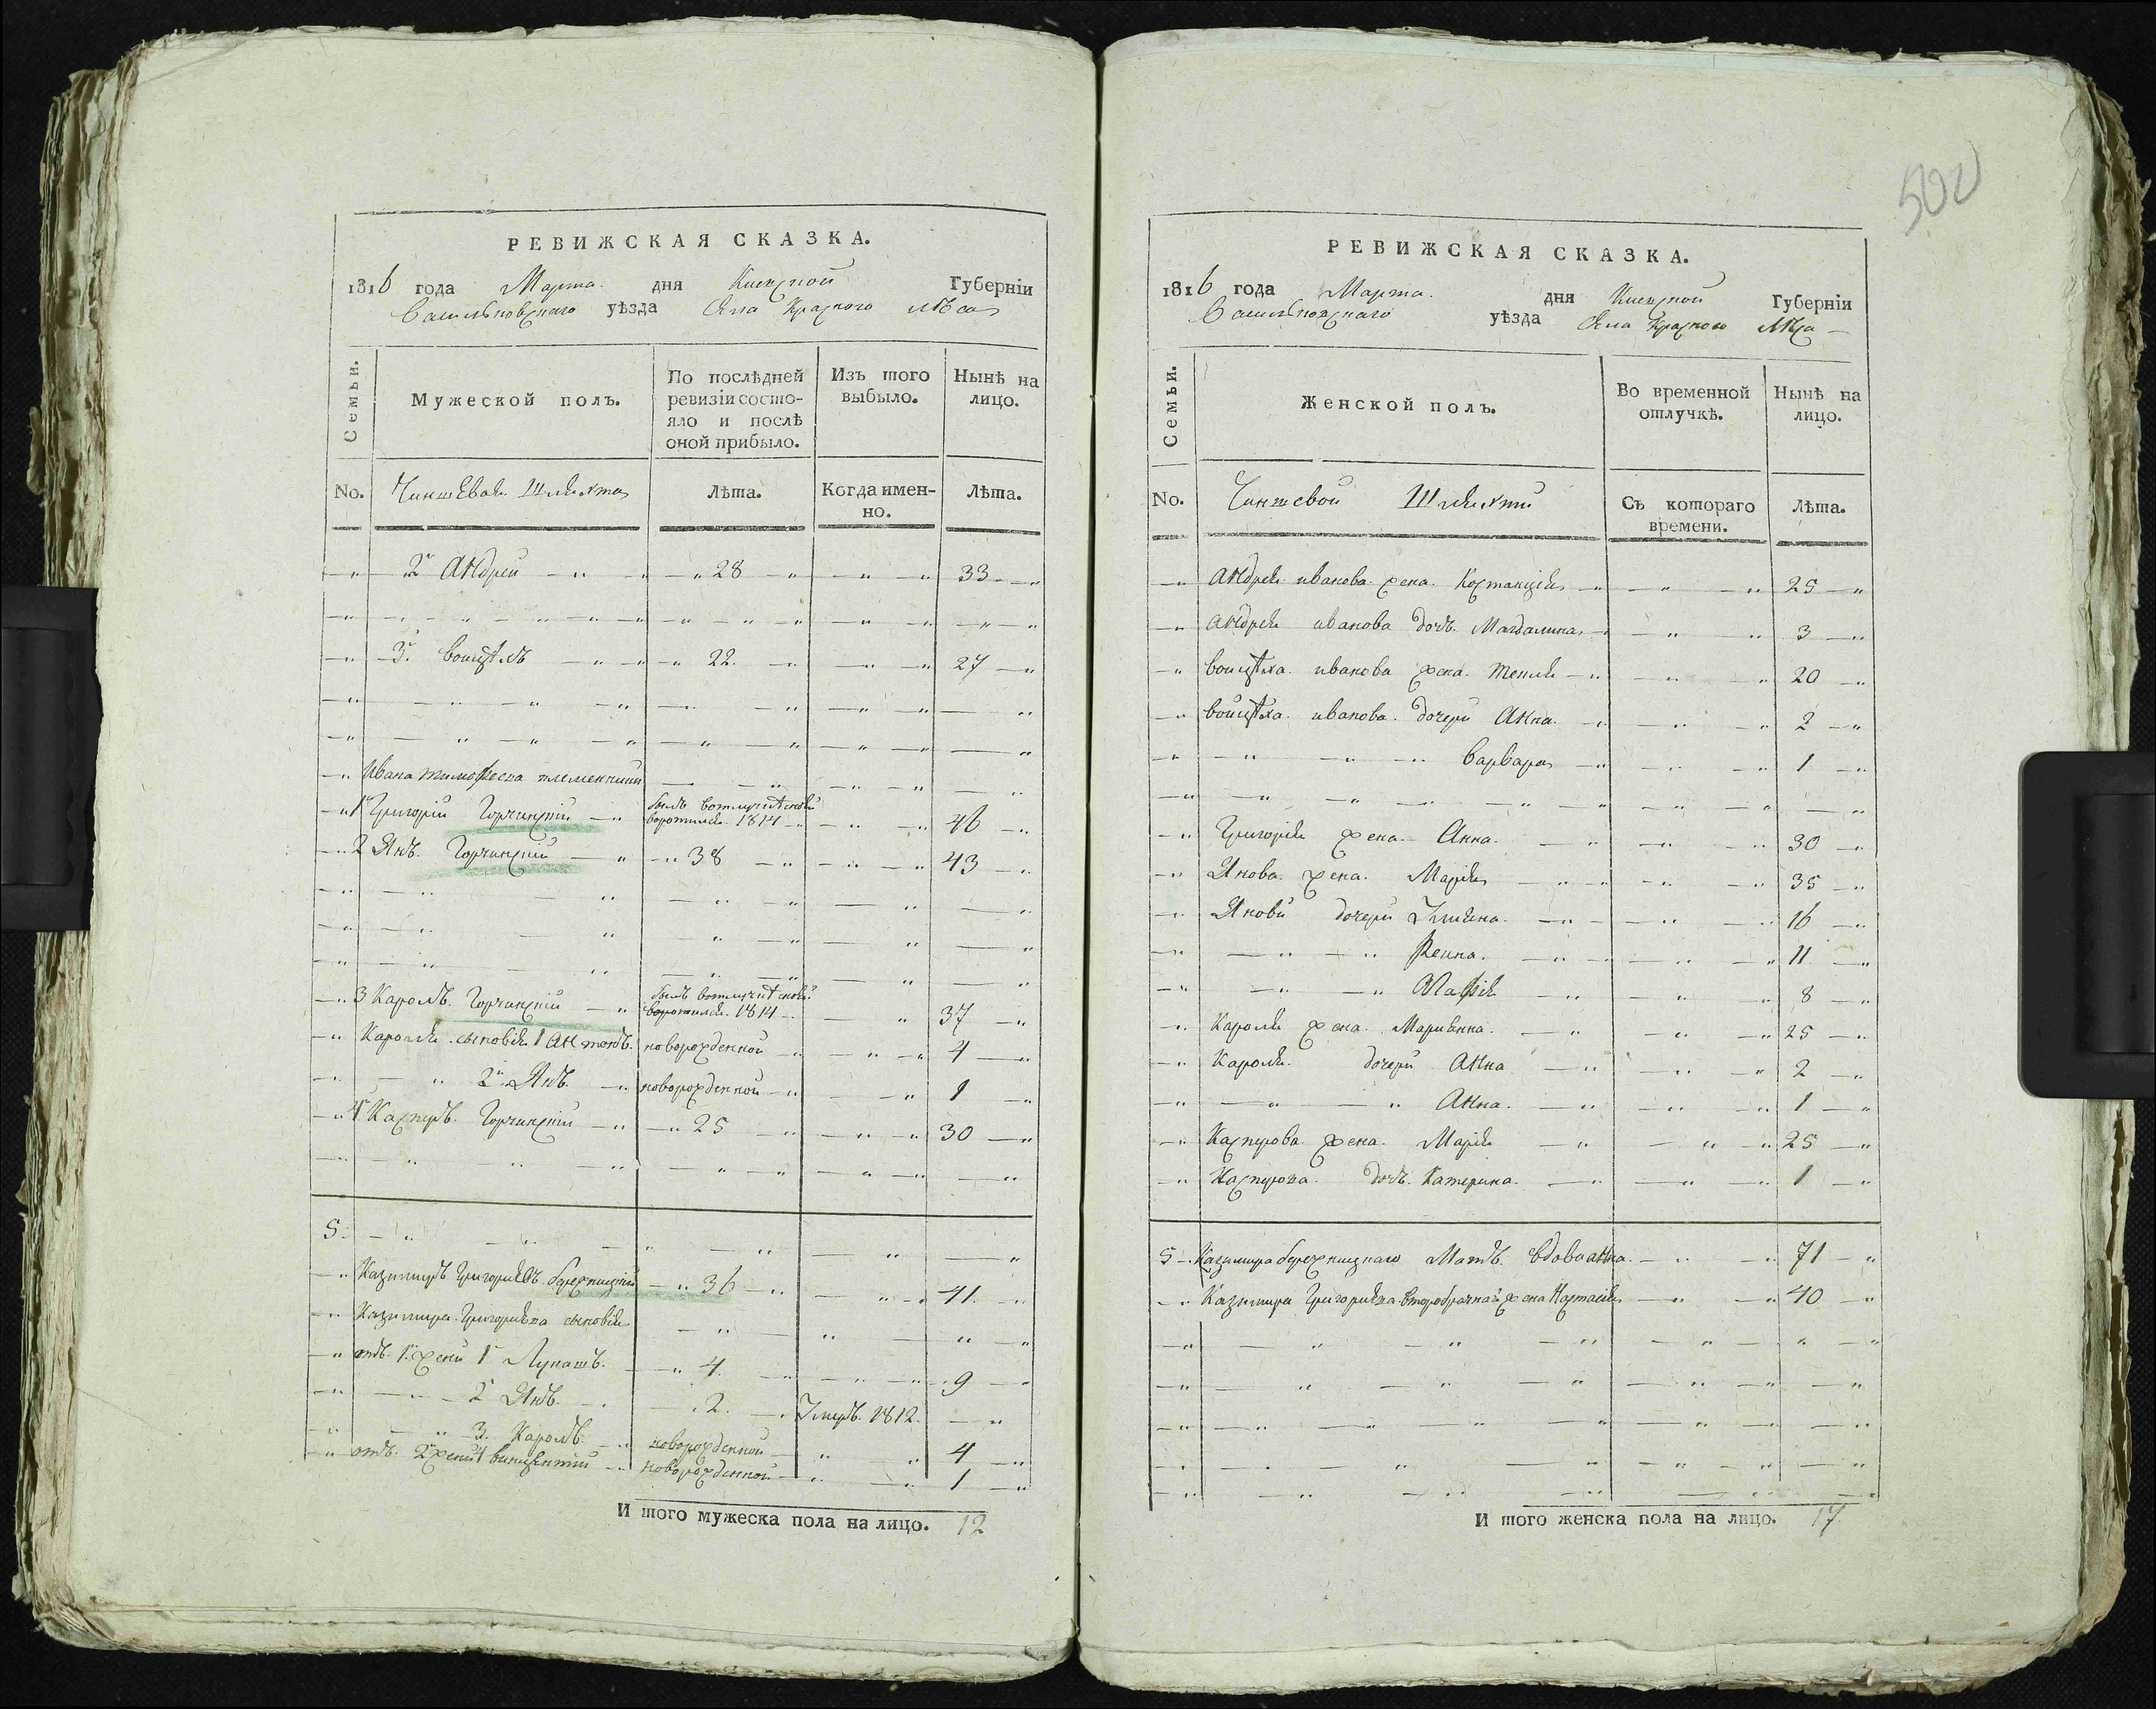 502
РЕВИЖСКАЯ СКАЗКА.
1816 года Марта дня Киевской Губерніи
Васильковскаго уѣзда Села Красного лѣса
Семьи.
Мужеской полъ.
По послѣдней ревизіи состо-
яло и послѣ
оной прибыло.
Изъ того выбыло.
Нынѣ на лицо.
No. Чиншевая Шляхта
Лѣта.
Когда имен-
но.
Лѣта.
2й Андрей 28 33
3й Войцѣхъ 22 27
Ивана Тимофеева племенники
1й Григорій Горчинскій былъ вотлучкѣ
воротился 1814 46
2 Янъ Горчинскій 38 43
3 Кароль Горчинскій былъ вотлучкѣ
воротился 1814 37
Кароля сыновья 1 Антонъ новорожденной 4
2й Янъ новорожденной 1
4й Касперъ Горчинскій 25 30
5.
Казимиръ Григорьевъ 36 41
Казимира Григорьева сыновья
отъ 1й жены 1й Лукашъ 4 9
2й Янъ 2 Умеръ 1812
3 Кароль новорожденной 4
отъ 2й жены 4 Винцентій новорожденной 1
И того мужеска пола на лицо. 12
РЕВИЖСКАЯ СКАЗКА.
1816 года Марта дня Киевской Губерніи
Васильковскаго уѣзда Села Красного Лѣса
Семьи.
Женской полъ.
Во временной отлучкѣ.
Нынѣ на лицо.
No. Чиншевой Шляхты
Съ котораго времени.
Лѣта.
Андрея иванова жена Костанція 25
Андрея иванова дочь Магдалина 3
Войцѣха иванова жена Текля 20
Войцѣха иванова дочери Анна 2
Варвара 1
Григорія жена Анна 30
Янова жена Марія 35
Яновы дочери 16
11
8
Кароля жена Маріянна 25
Кароля дочери Анна 2
Анна 1
Касперова жена Марія 25
Касперова дочь Катерина 1
5 Казимира Мать вдова анна 71
Казимира Григорьева второбрачная жена Настасія 40
И того женска пола на лицо. 17